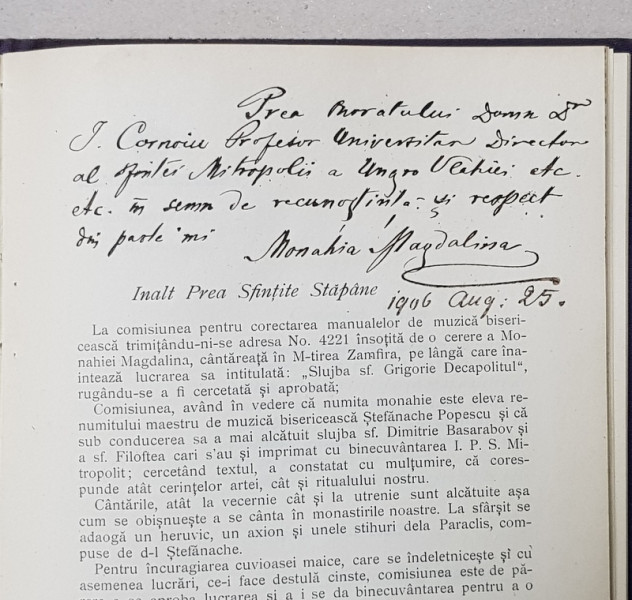 Prea onoratului Domn Dr
I. Cornoiu Profesor Universitar Director
al sfintei Mitropolii a Ungro Vlahiei etc.
etc. în semn de recunoștința și respect
din parte 'mi
Monahia Magdalina
1906 Aug: 25.
Inalt Prea Sfințite Stăpâne
La comisiunea pentru corectarea manualelor de muzică biseri-
cească trimițându-ni-se adresa No. 4221 însoțită de o cerere a Mo-
nahiei Magdalina, cântăreață în M-tirea Zamfira, pe lângă care îna-
intează lucrarea sa intitulată: „Slujba sf. Grigorie Decapolitul“,
rugându-se a fi cercetată și aprobată;
Comisiunea, având în vedere că numita monahie este eleva re-
numitului maestru de muzică bisericească Ștefănache Popescu și că
sub conducerea sa a mai alcătuit slujba sf. Dimitrie Basarabov și
a sf. Filoftea cari s'au și imprimat cu binecuvântarea I. P. S. Mi-
tropolit; cercetând textul, a constatat cu mulțumire, că cores-
punde atât cerințelor artei, cât și ritualului nostru.
Cântările, atât la vecernie cât și la utrenie sunt alcătuite așa
cum se obișnuește a se cânta în monastirile noastre. La sfârșit se
adaogă un heruvic, un axion și unele stihuri dela Paraclis, com-
puse de d-l Ștefănache.
Pentru încuragiarea cuvioasei maice, care se îndeletnicește și cu
asemenea lucrări, ce-i face destulă cinste, comisiunea este de pă-
se aproba lucrarea și a i se da binecuvântarea pentru a o